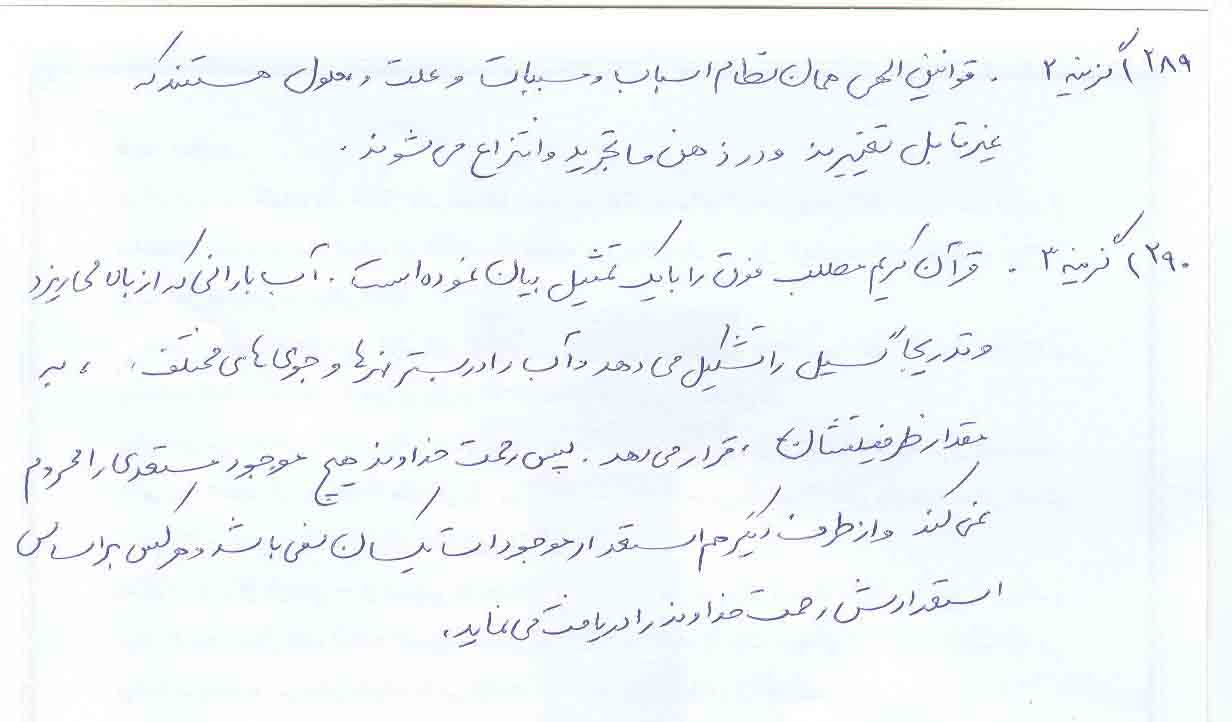 ۲۸۹) گزینه ۲ . قوانین الهی همان نظام اسباب و مسببات و علت و معلول هستند که
غیرقابل تغییرند و در ذهن ما تجرید و انتزاع می شوند .
۲۹۰) گزینه ۳ . قرآن کریم مطلب فوق را با یک تمثیل بیان نموده است . آب بارانی که از بالا می ریزد
و تدریجاً سیل را تشکیل می دهد و آب را در بستر نهرها و جوی های مختلف ، به
مقدار ظرفیتشان ، قرار می دهد . پس رحمت خداوند هیچ موجود مستعدی را محروم
نمی کند و از طرف دیگر هم استعداد موجودات یکسان نمی باشد و هر کس بر اساس
استعدادش رحمت خداوند را دریافت می نماید .